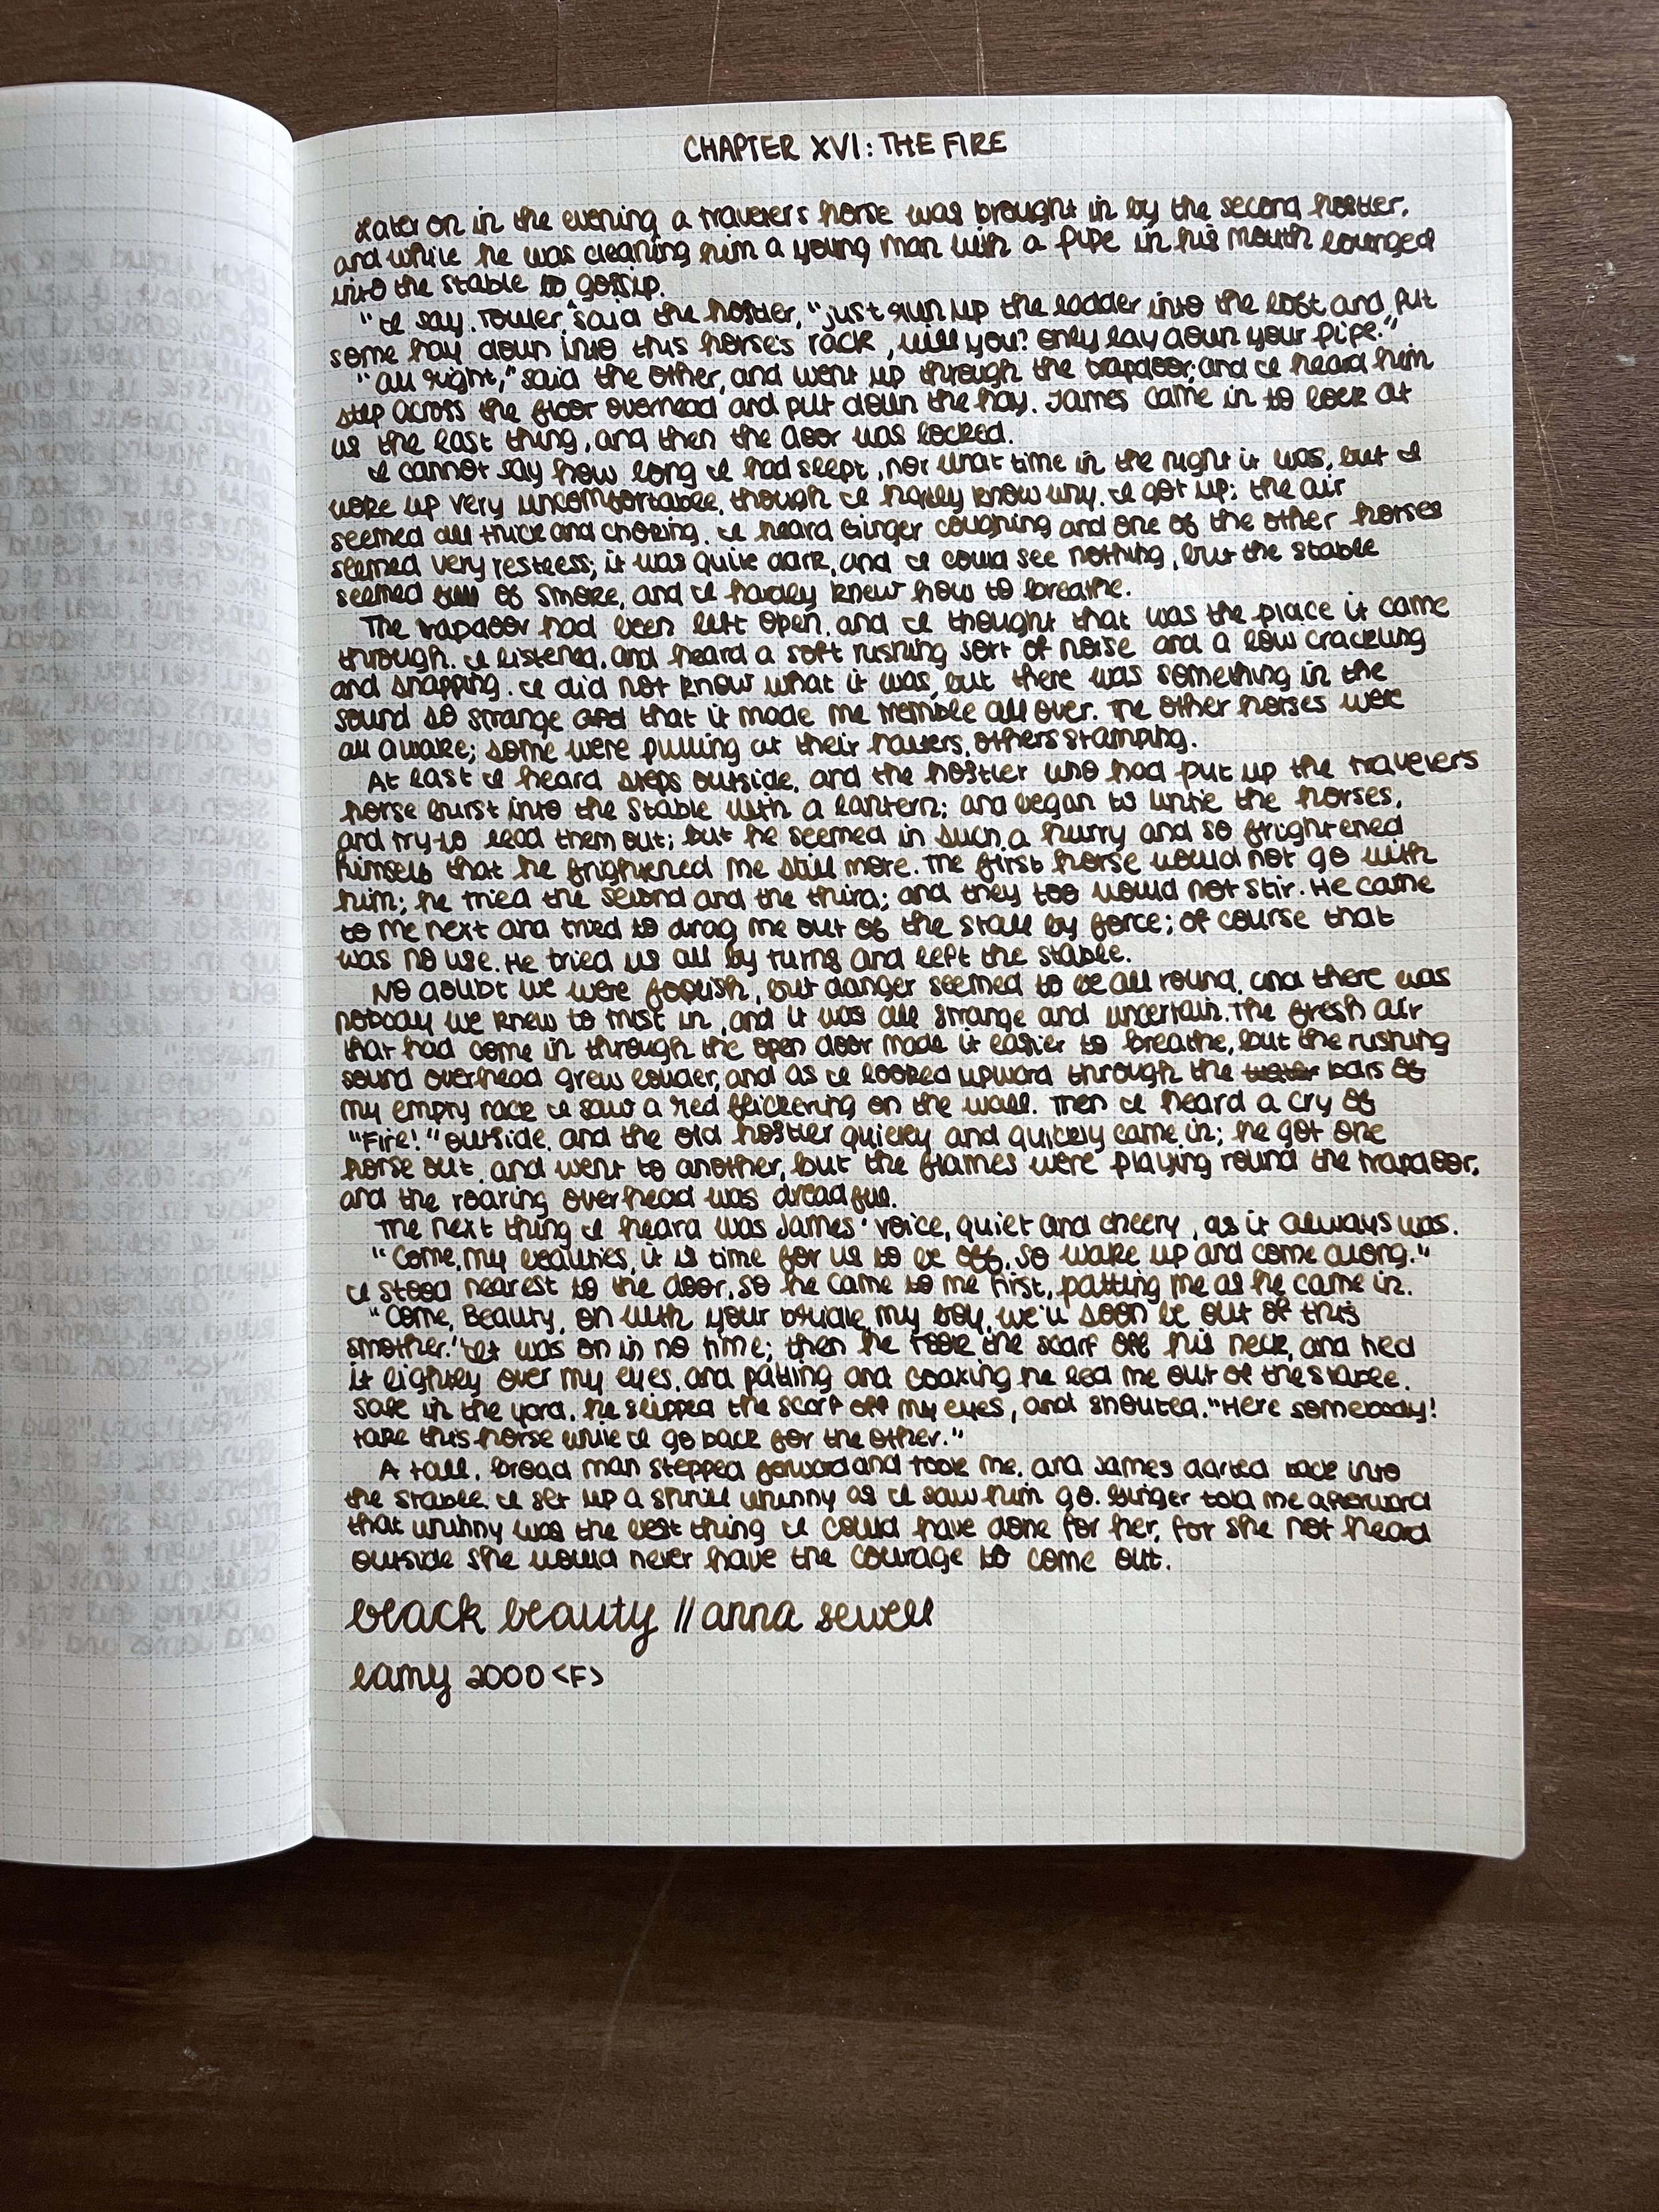 CHAPTER XVI: THE FIRE
Later on in the evening a traveler's horse was brought in by the second hostler,
and while he was cleaning him a young man with a pipe in his mouth lounged
into the stable to gossip.
"I say, Towler," said the hostler, "just run up the ladder into the loft and put
some hay down into this horse's rack, will you? only lay down your pipe."
"All right," said the other, and went up through the trapdoor; and I heard him
step across the floor overhead and put down the hay. James came in to look at
us the last thing, and then the door was locked.
I cannot say how long I had slept, nor what time in the night it was, but I
woke up very uncomfortable, though I hardly know why. I got up; the air
seemed all thick and choking. I heard Ginger coughing and one of the other horses
seemed very restless; it was quite dark, and I could see nothing, but the stable
seemed full of smoke, and I hardly knew how to breathe.
The trapdoor had been left open, and I thought that was the place it came
through. I listened, and heard a soft rushing sort of noise and a low crackling
and snapping. I did not know what it was, but there was something in the
sound so strange and that it made me tremble all over. The other horses were
all awake; some were pulling at their halters, others stamping.
At last I heard steps outside, and the hostler who had put up the traveler's
horse burst into the stable with a lantern; and began to untie the horses,
and try to lead them out; but he seemed in such a hurry and so frightened
himself that he frightened me still more. The first horse would not go with
him; he tried the second and the third; and they too would not stir. He came
to me next and tried to drag me out of the stall by force; of course that
was no use. He tried us all by turns and left the stable.
No doubt we were foolish, but danger seemed to be all round, and there was
nobody we knew to trust in, and it was all strange and uncertain. The fresh air
that had come in through the open door made it easier to breathe, but the rushing
sound overhead grew louder, and as I looked upward through the bars of
my empty rack I saw a red flickering on the wall. Then I heard a cry of
"Fire!" outside, and the old hostler quietly and quickly came in; he got one
horse out, and went to another, but the flames were playing round the trapdoor,
and the roaring overhead was dreadful.
The next thing I heard was James' voice, quiet and cheery, as it always was.
"Come, my beauties, it is time for us to be off, so wake up and come along."
I stood nearest to the door, so he came to me first, patting me as he came in.
"Come, Beauty, on with your bridle, my boy, we'll soon be out of this
smother." It was on in no time; then he took the scarf off his neck, and tied
it lightly over my eyes, and patting and coaxing he led me out of the stable.
Safe in the yard, he slipped the scarf off my eyes, and shouted, "Here somebody!
take this horse while I go back for the other."
A tall, broad man stepped forward and took me, and James darted back into
the stable. I set up a shrill whinny as I saw him go. Ginger told me afterward
that whinny was the best thing I could have done for her, for she not heard
outside she would never have the courage to come out.
black beauty // anna sewell
lamy 2000 <F>